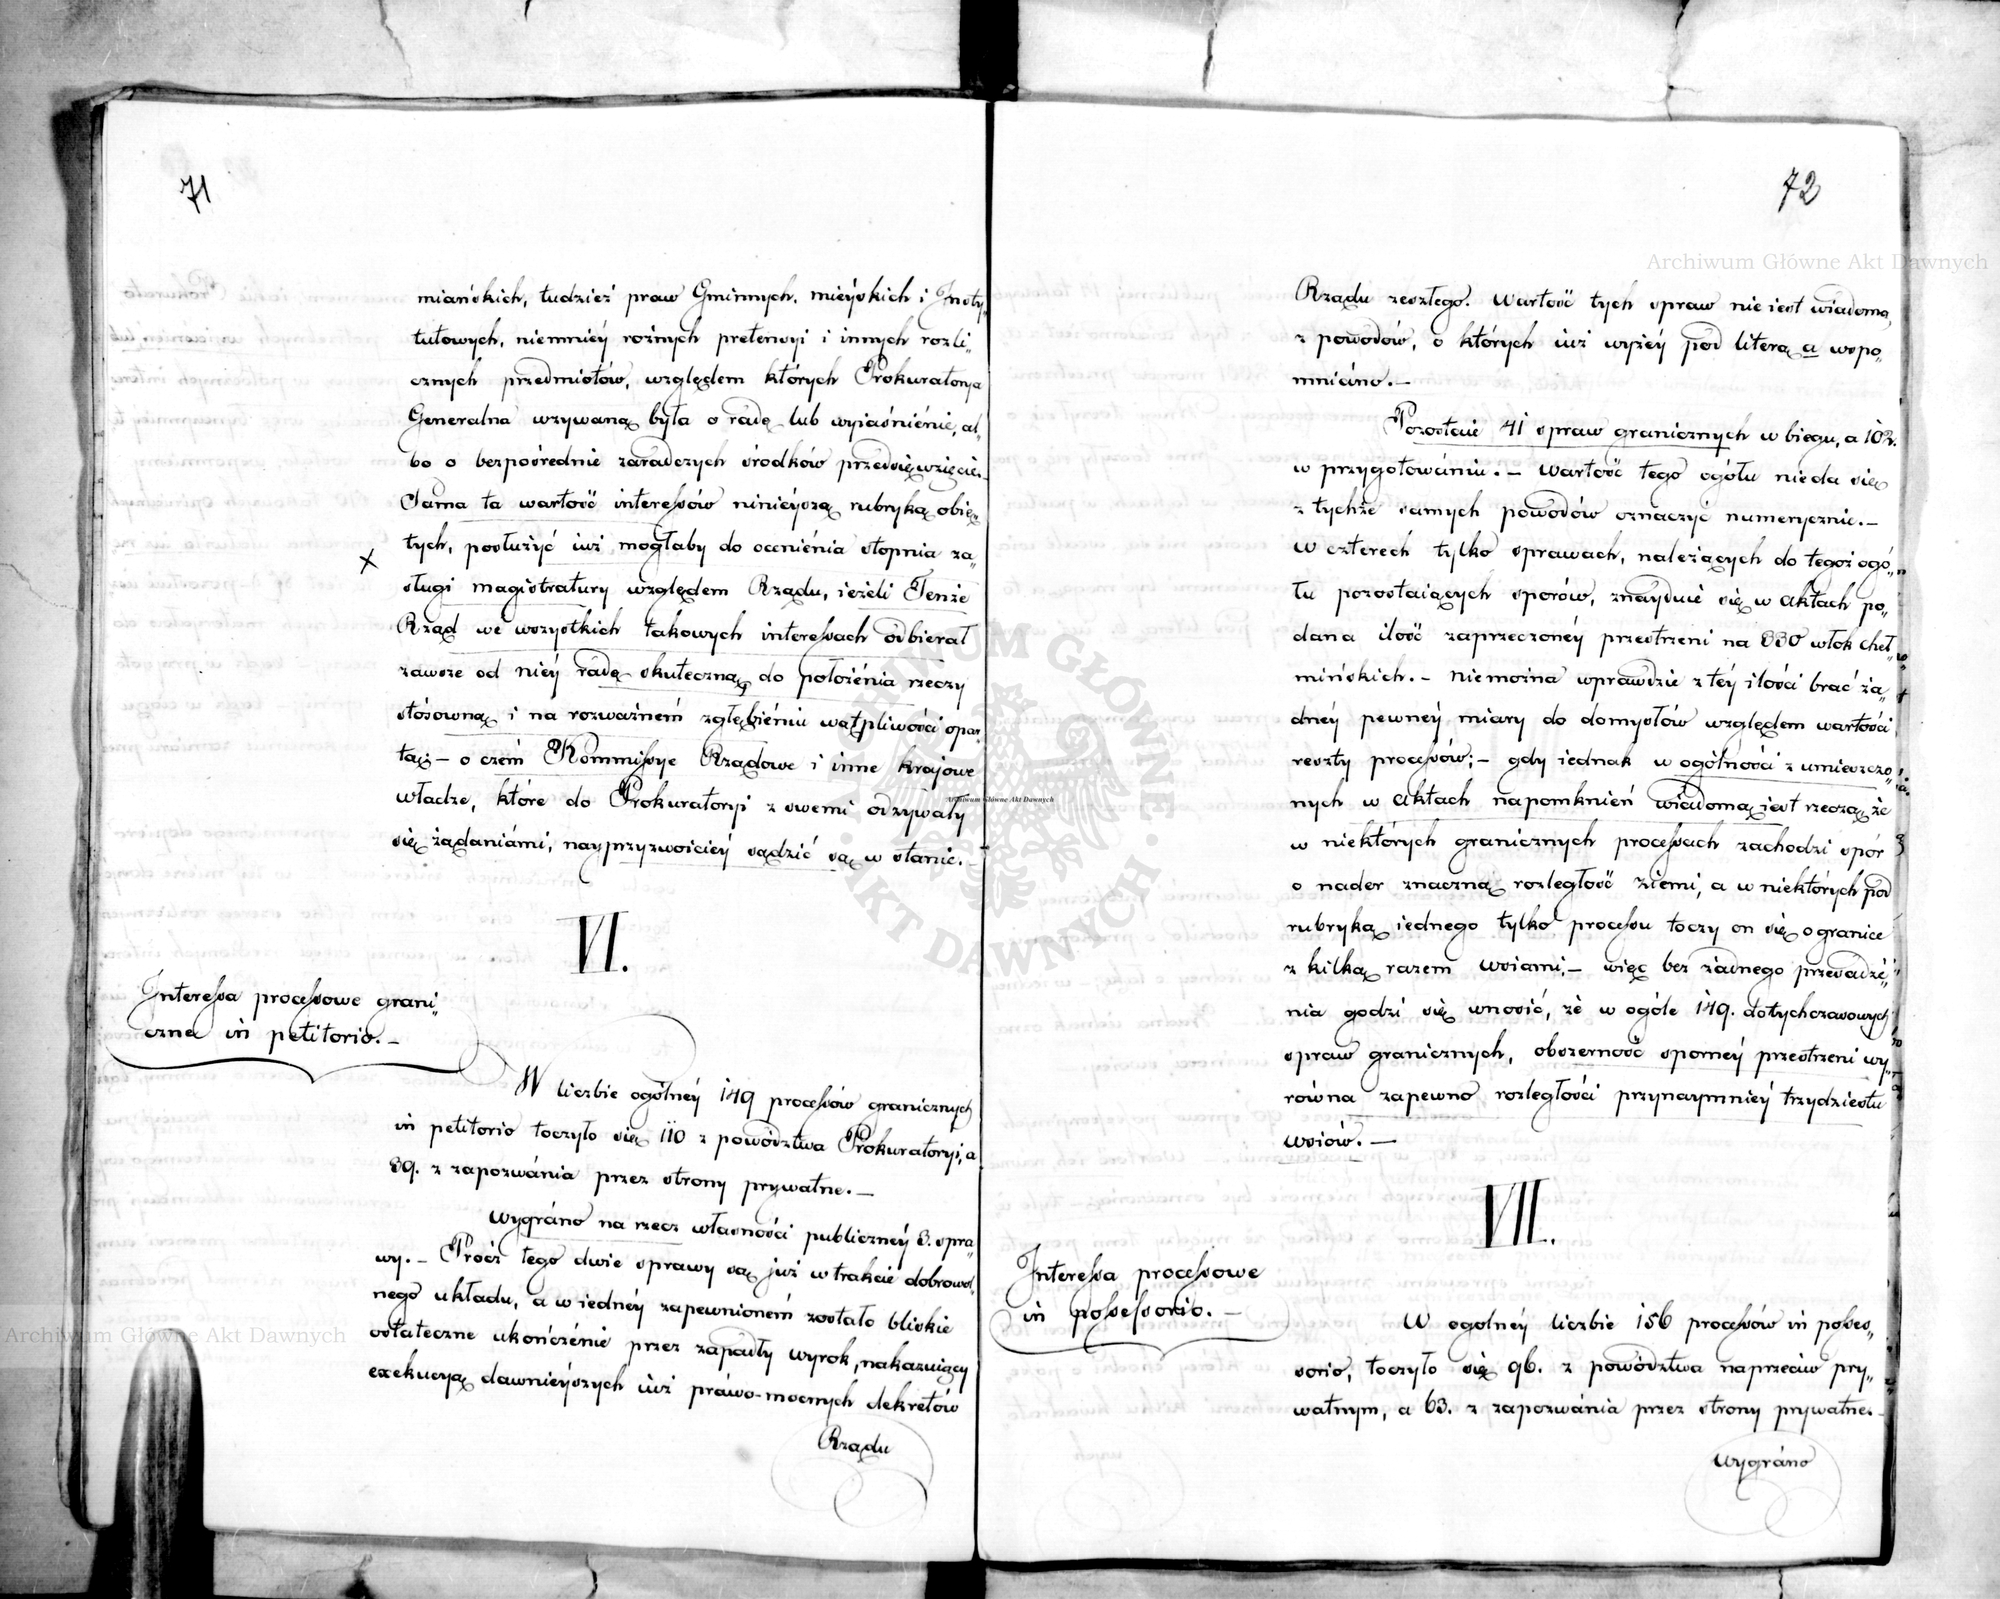 71
miańskich, tudzież praw Gminnych, mieyskich i Insty„
tutowych, niemniéy rożnych pretensyi i innych rozli„
cznych przedmiotów, względem których Prokuratorya
Generalna wzywaną była o radę lub wyiaśniénie, al„
bo o bezpośrednie zaradczych środków przedsięwzięcie.
Sama ta wartość interessów ninieyszą rubryką obię„
tych, posłużyć iuż mogłaby do oceniénia stopnia za„
X
sługi magistratury względem Rządu, ieżeli Tenże
Rząd we wszystkich takowych interessach odbierał
zawsze od niéy radę skuteczną, do położénia rzeczy
stósowną i na rozważném zgłębiéniu wątpliwości opar„
tą; – o czém Kommissye Rządowe i inne krajowe
władze, które do Prokuratoryi z swemi odzywały
się żądaniámi, nayprzyzwoiciey sądzić są w stanie. –
VI.
Interessa processowe grani„
czne in petitorio. –
W liczbie ogólnéy 149 processów granicznych
in petitorio toczyło się 110 z powództwa Prokuratoryi, a
39. z zapozwánia przez strony prywatne. –
Wygráno na rzecz własności publicznéy 3. spra„
wy. – Prócz tego dwie sprawy są już w trakcie dobrowol„
nego układu, a w iednéy zapewnioném zostało bliskie
ostateczne ukończénie przez zapadły wyrok, nakazuiący
exekucyą dawnieyszych iuż práwo-mocnych dekretów
Rządu
72
Archiwum Główne Akt Dawnych
Rządu zeszłego. Wartość tych spraw nie iest wiadoma,
z powodów, o których iuż wyżéy pod literą a wspo„
mniáno. –
Pozostaie 41 spraw granicznych w biegu, a 102.
w przygotowániu. – Wartość tego ogółu nieda się
z tychże samych powodów oznaczyć numerycznie. –
W czterech tylko sprawach, należących do tegoż ogó„
łu pozostaiących sporów, znayduie się w Aktach po„
dana ilość zaprzeczonéy przestrzeni na 330 włok cheł„
mińskich. – Niemożna wprawdzie z téy ilości brać ża„
dnéy pewnéy miary do domysłów względem wartości
reszty processów; – gdy iednak w ogólności z umieszczo„
nych w Aktach napomknień wiadomą iest rzeczą, że
w niektórych granicznych processach zachodzi spór
o nader znaczną rozległość ziemi, a w niektórych pod
rubryką iednego tylko processu toczy on się o granice
z kilką razem wsiami; – więc bez żadnego przesadzé„
nia godzi się wnosić, że w ogóle 149. dotychczasowych
spraw granicznych, obszerność spornéy przestrzeni wy„
równa zapewne rozległości przynaymniéy trzydziestu
wsiów. –
VII.
Interessa processowe
in possessorio. –
W ogolnéy liczbie 156 processów in posses„
sorio, toczyło się 96. z powództwa naprzeciw pry„
watnym, a 63. z zapozwánia przez strony prywatne. –
Wygráno
Archiwum Główne Akt Dawnych
Archiwum Główne Akt Dawnych
ARCHIWUM GŁÓWNE · AKT DAWNYCH ·